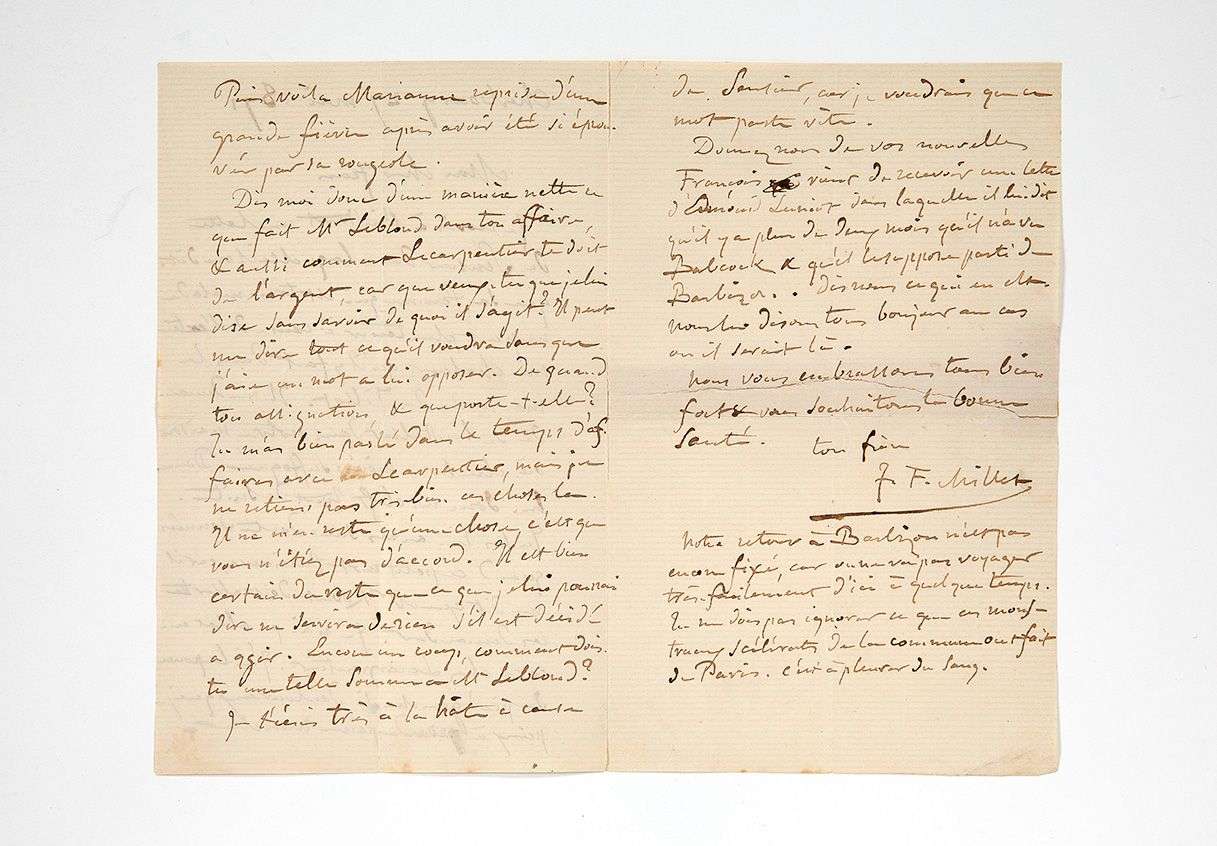 Puis voilà Marianne reprise d'une
grande fièvre après avoir été si éprou-
vée par sa rougeole.
Dis moi donc d'une manière nette ce
que fait Mr Leblond dans ton affaire,
& aussi comment Lecarpentier te doit
de l'argent, car que veux-tu que je lui
dise sans savoir de quoi il s'agit? Il peut
me dire tout ce qu'il voudra sans que
j'aie un mot a lui opposer. De quand
ton assignation & que porte-t-elle?
Tu m'as bien parlé dans le temps d'af-
faires avec Lecarpentier, mais je
ne retiens pas très bien ces choses là.
Il ne m'en reste qu'une chose, c'est que
vous n'étiez pas d'accord. Il est bien
certain du reste que ce que je lui pourrai
dire ne servira de rien s'il est décidé
a agir. Encore un coup, comment dois-
tu une telle somme a Mr Leblond?
Je t'écris très à la hâte à cause
de Sensier, car je voudrais que ce
mot parte vite.
Donnez nous de vos nouvelles
François vient de recevoir une lettre
d'Edmond dans laquelle il lui dit
qu'il y a plus de deux mois qu'il n'a vu
Babcock & qu'il le suppose parti de
Barbizon. Dis nous ce qui en est.
nous lui disons tous bonjour au cas
où il serait là.
Nous vous embrassons tous bien
fort & vous souhaitons la bonne
santé.
ton frère
J. F. Millet
Notre retour à Barbizon n'est pas
encore fixé, car on ne va pas voyager
très facilement d'ici à quelque temps.
Tu ne dois pas ignorer ce que ces mons-
trueux scélérats de la commune ont fait
de Paris. c'est à pleurer du sang.